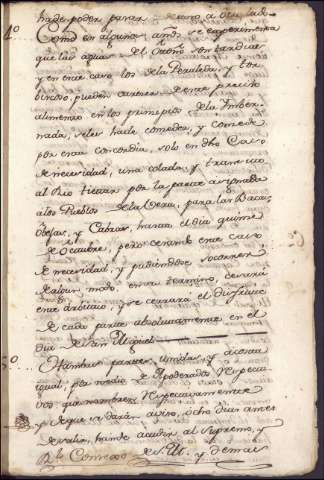 ha de poder pasar
4º Como en algunos años se experimenta
que las aguas del Otoño son tardias
y en este caso los de la Peraleda, y Tor
bircoso, pueden carecer de este preciso
alimento en los principios de la Imber
nada, se les ha de conceder, y concede
por esta concordia, solo en dho Caso
de necesidad, una colada, y transito
al Rio Tietar por la parte asignada
a los Pueblos de la Vera, para las Bacas,
Obejas, y Cabras, hasta el dia quince
de Octubre, pero cesando este caso
de necesidad, y pudiendose socorrer
de algun modo, en su termino, cesará
este arbitrio, y se cerrará el disfrute
de cada parte absolutamente en el
dia de San Miguel
5º Nosotros partes unidas, y acosta
igual, por medio de Apoderados respecti
vos que nombren respectivamente
y se que se darán aviso, ocho dias antes
de salir, han de acudir al Supremo, y
Rl. Consejo de S. M. y demas